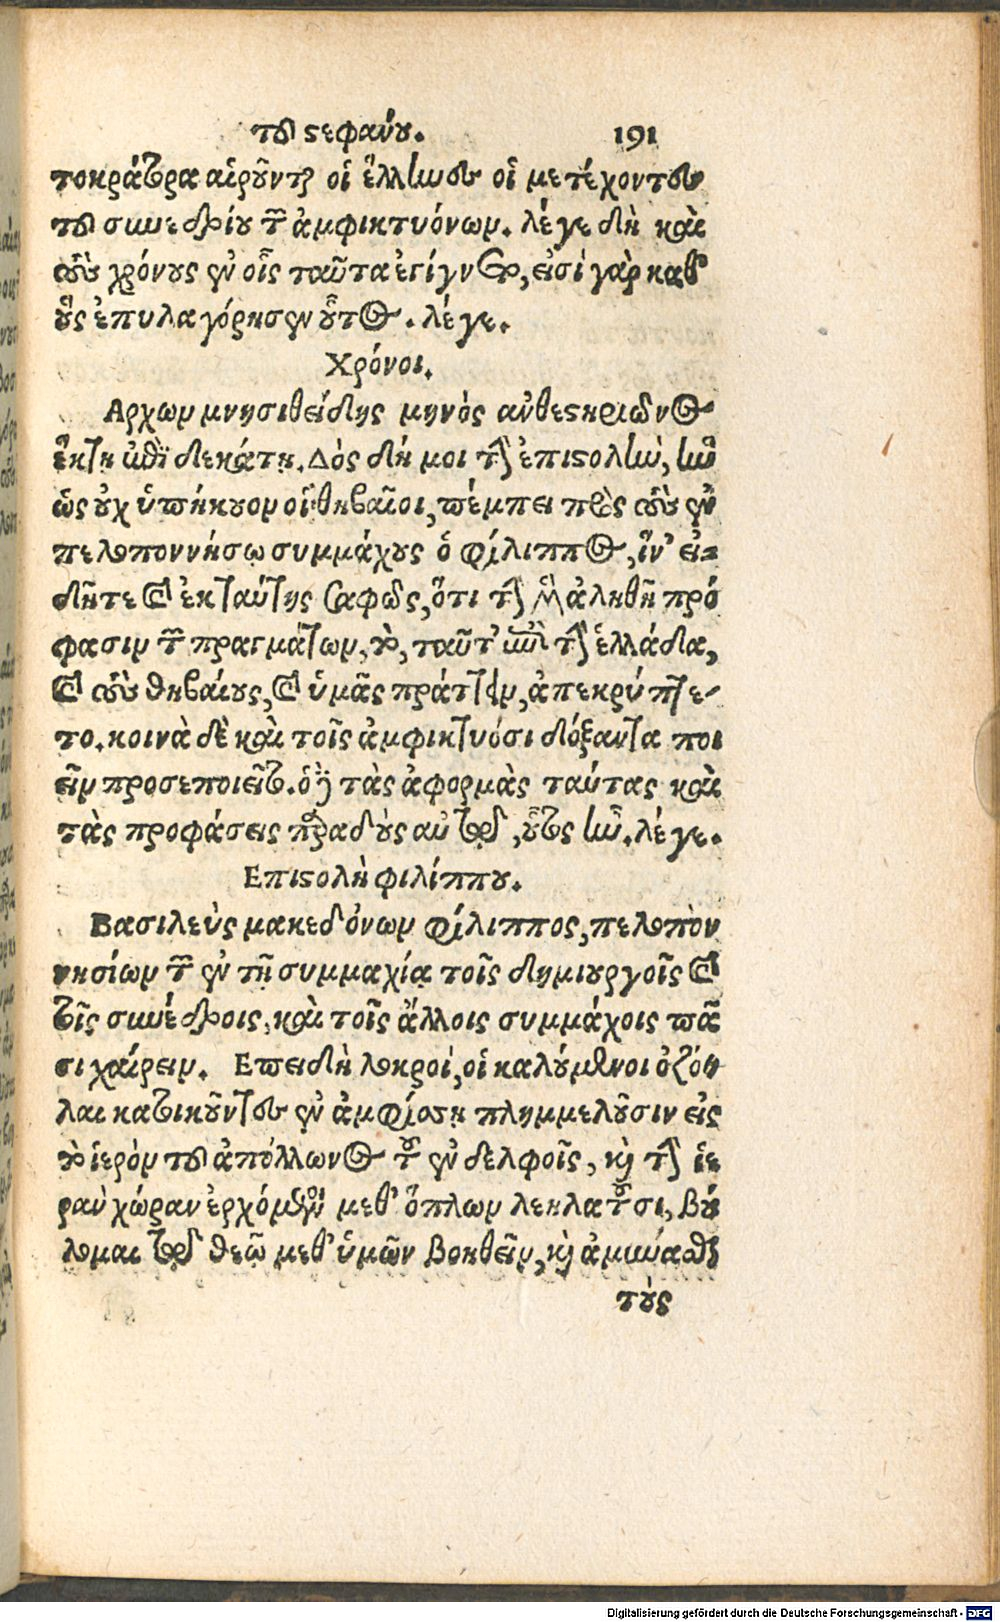 τοῦ στεφάνου. 191
τοκράτορα αἱροῦνται οἱ ἕλληνες οἱ μετέχοντες
τοῦ συνεδρίου τῶν ἀμφικτυόνων. λέγε δὴ καὶ
τοὺς χρόνους ἐν οἷς ταῦτα ἐγίγνετο, εἰσὶ γὰρ καθ᾽
οὓς ἐπυλαγόρησεν οὗτος. λέγε.
Χρόνοι.
Αρχων μνησιθείδης μηνὸς ἀνθεστηριῶνος
ἕκτῃ ἐπὶ δεκάτῃ. Δὸς δή μοι τὴν ἐπιστολὴν, ἣν
ὡς οὐχ ὑπήκουον οἱ θηβαῖοι, πέμπει πρὸς τοὺς ἐν
πελοποννήσῳ συμμάχους ὁ φίλιππος, ἵν᾽ εἰ-
δῆτε καὶ ἐκ ταύτης σαφῶς, ὅτι τὴν μὲν ἀληθῆ πρό
φασιν τῶν πραγμάτων, τὸ, ταῦτ᾽ ἐπὶ τὴν ἑλλάδα,
καὶ τοὺς θηβαίους, καὶ ὑμᾶς πράττειν, ἀπεκρύπτε-
το. κοινὰ δὲ καὶ τοῖς ἀμφικτυόσι δόξαντα ποι
εῖν προσεποιεῖτο. ὁ δὲ τὰς ἀφορμὰς ταύτας καὶ
τὰς προφάσεις παραδοὺς αὐτῷ, οὗτος ἦν. λέγε.
Επιστολὴ φιλίππου.
Βασιλεὺς μακεδόνων φίλιππος, πελοπον
νησίων τῶν ἐν τῇ συμμαχίᾳ τοῖς δημιουργοῖς καὶ
τοῖς συνέδροις, καὶ τοῖς ἄλλοις συμμάχοις πᾶ
σι χαίρειν. Επειδὴ λοκροὶ, οἱ καλούμενοι ὀζό
λαι κατοικοῦντες ἐν ἀμφίσσῃ πλημμελοῦσιν εἰς
τὸ ἱερὸν τοῦ ἀπόλλωνος τοῦ ἐν δελφοῖς, καὶ τὴν ἱε
ρὰν χώραν ἐρχόμενοι μεθ᾽ ὅπλων λεηλατοῦσι, βού
λομαι τῷ θεῷ μεθ᾽ ὑμῶν βοηθεῖν, καὶ ἀμύνασθαι
τοὺς
Digitalisierung gefördert durch die Deutsche Forschungsgemeinschaft - DFG